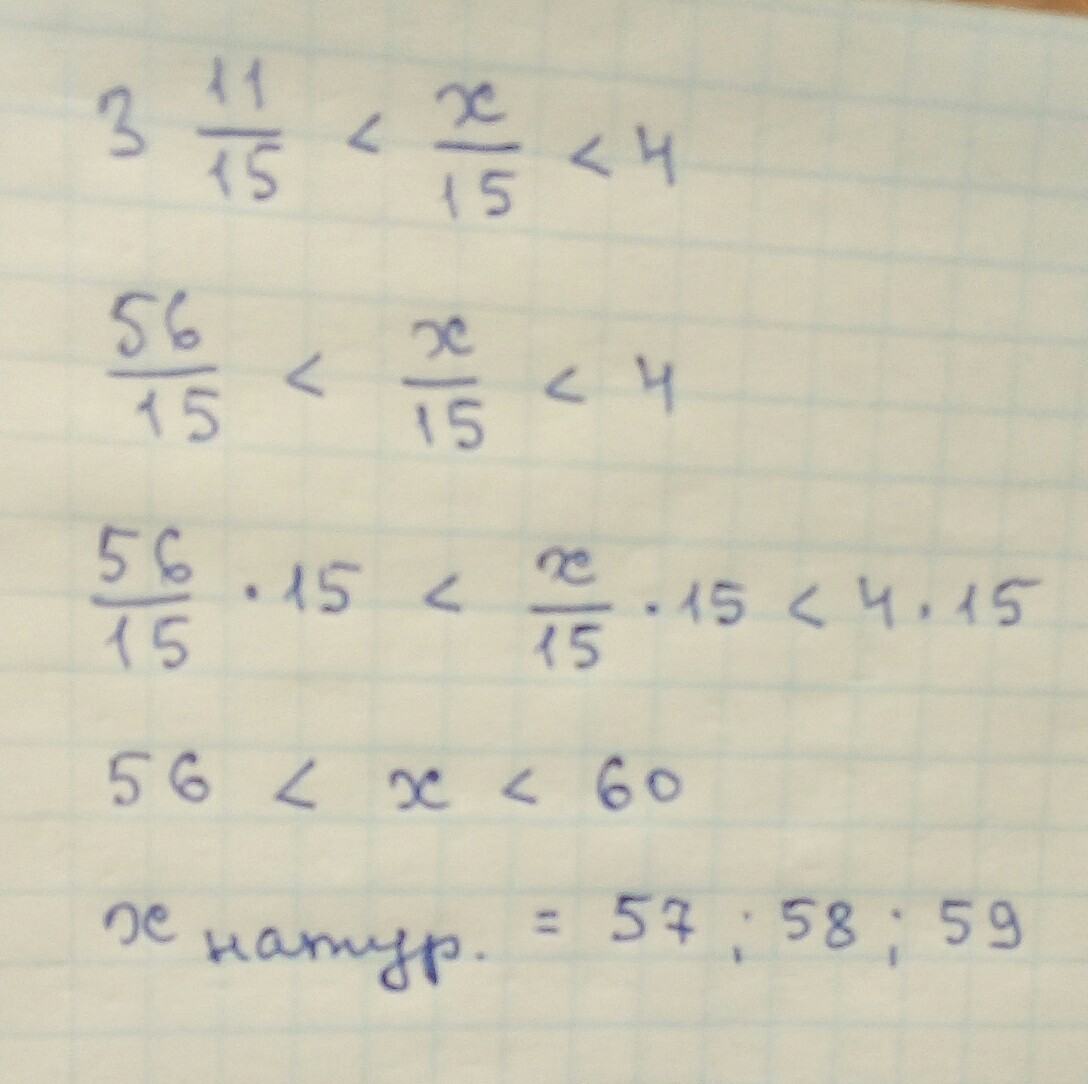 3 11/15 < x/15 < 4
56/15 < x/15 < 4
56/15 · 15 < x/15 · 15 < 4 · 15
56 < x < 60
x натур. = 57 ; 58 ; 59